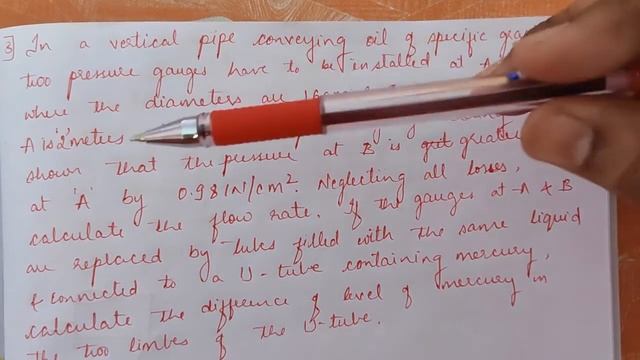 3] In a vertical pipe conveying oil of specific
two pressure gauges have to be installed at A
where the diameters are
A is '2' meters
shown that the pressure at B is greater
at 'A' by 0.981N/cm². Neglecting all losses,
calculate the flow rate. If the gauges at A & B
are replaced by tubes filled with the same liquid
& connected to a U-tube containing mercury,
calculate the difference of level of mercury in
the two limbs of the U-tube.